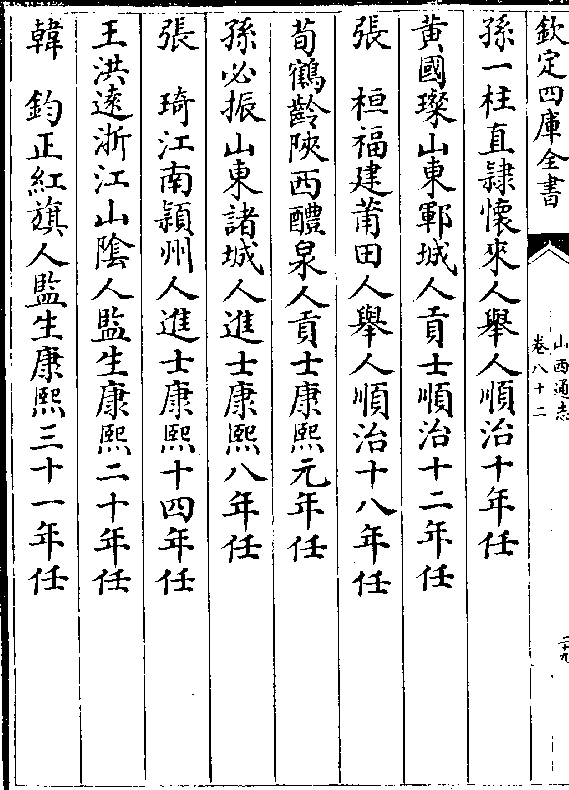 欽定四庫全書
山西通志
卷八十二
二十九
孫一柱直隸懷來人舉人順治十年任
黃國璨山東鄆城人貢士順治十二年任
張　桓福建莆田人舉人順治十八年任
荀鶴齡陜西醴泉人貢士康熙元年任
孫必振山東諸城人進士康熙八年任
張　琦江南潁州人進士康熙十四年任
王洪遠浙江山陰人監生康熙二十年任
韓　鈞正紅旗人監生康熙三十一年任